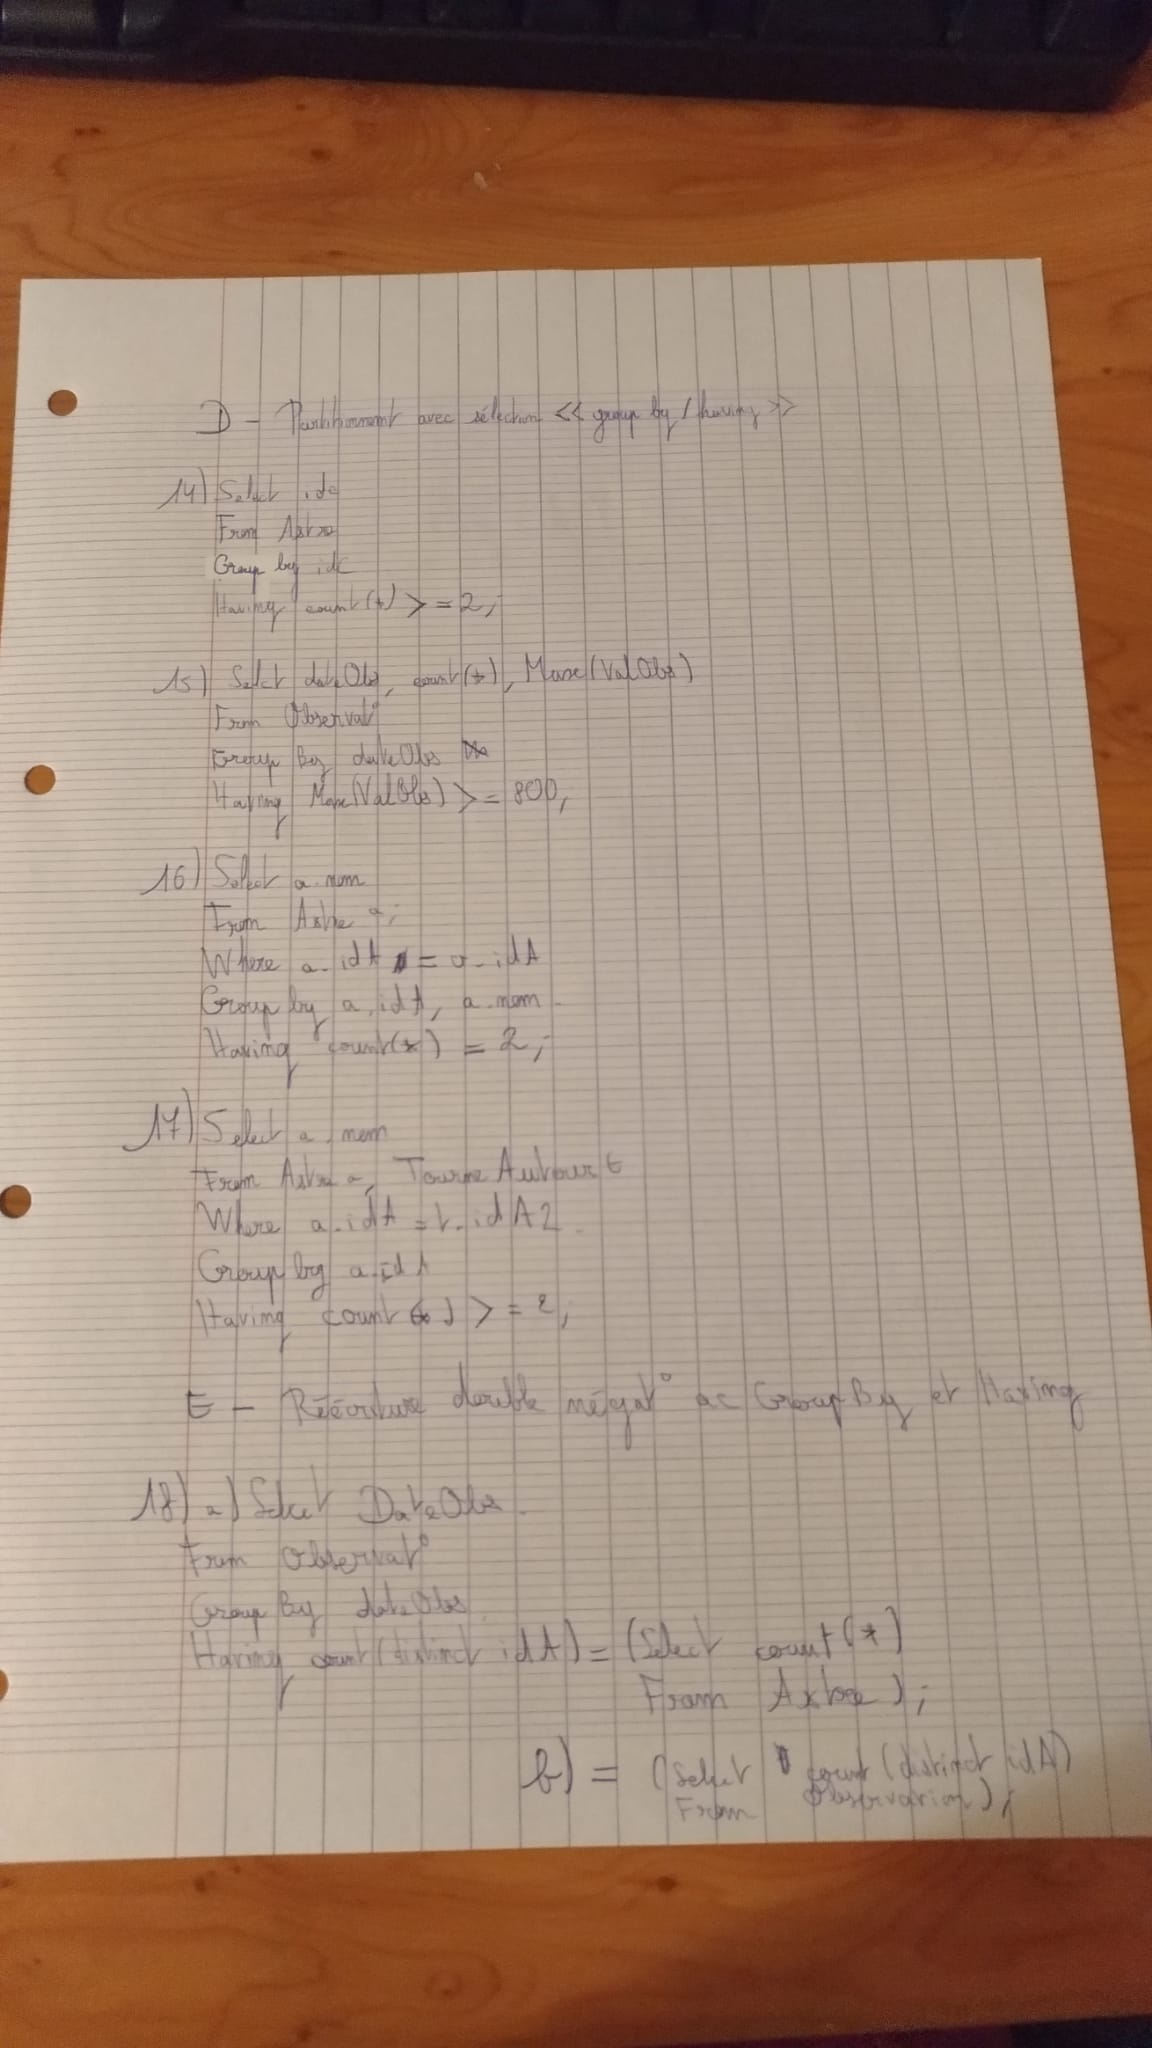 D - Partitionnement avec sélection << group by / having >>
14) Select idc
From Astre
Group by idc
Having count(*) >= 2;
15) Select dateObs, count(*), Max(ValObs)
From Observat°
Group By dateObs
Having Max(ValObs) >= 800;
16) Select a.nom
From Astre a;
Where a.idA = o.idA
Group by a.idA, a.nom
Having count(*) = 2;
17) Select a.nom
From Astre a, TourneAutour t
Where a.idA = t.idA2
Group by a.idA
Having count(*) >= 2;
E - Réécriture double négat° ac Group By et Having
18) a) Select DateObs
From Observat°
Group By dateObs
Having count(distinct idA) = (Select count(*)
From Astre);
b) = (Select count(distinct idA)
From Observation);